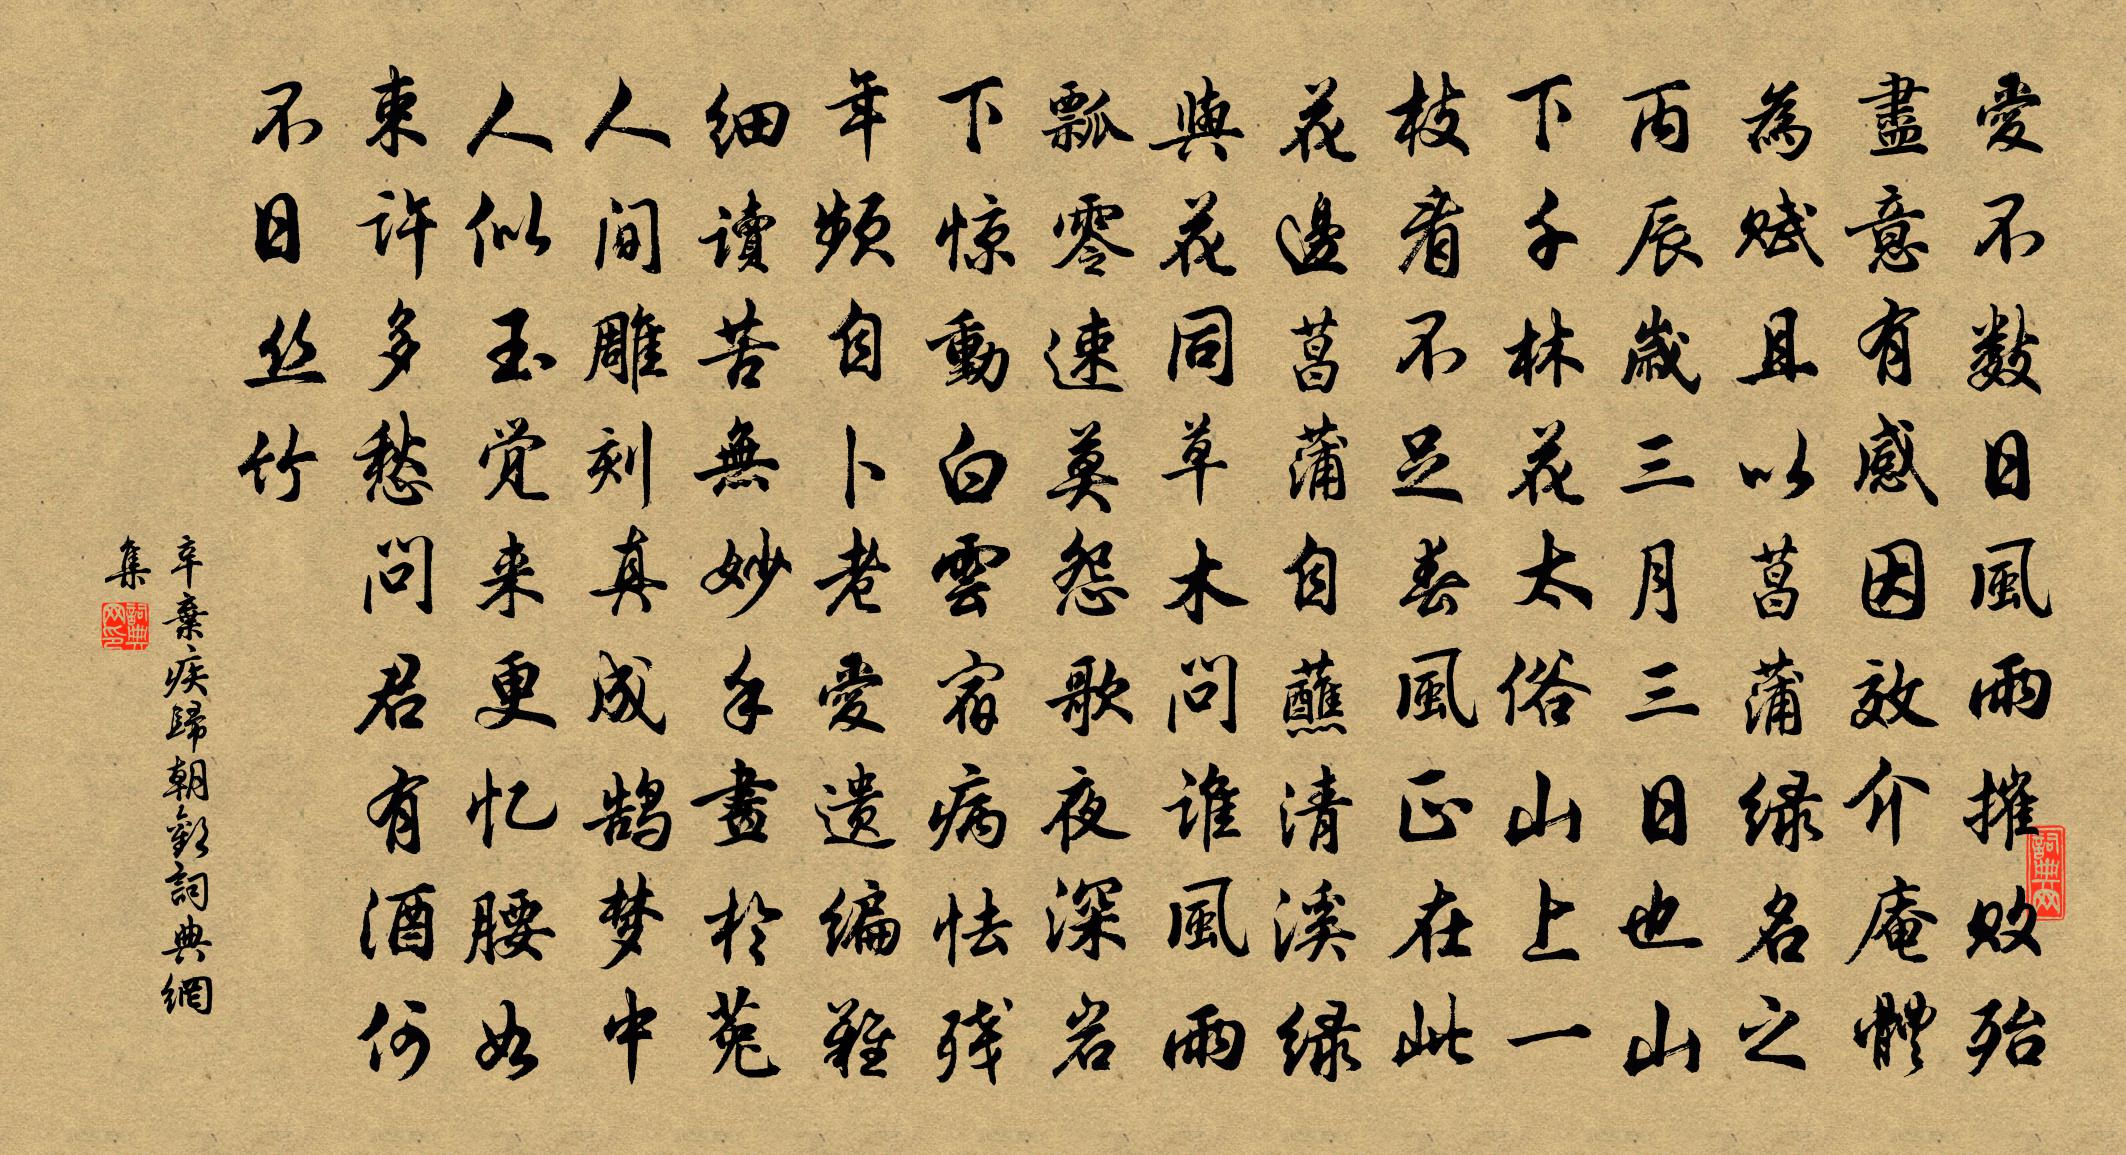 愛不数日風雨摧敗殆
盡意有感因效介庵體
為赋且以菖蒲緑名之
丙辰歲三月三日也山
下千林花太俗山上一
枝看不足春風正在此
花邊菖蒲自蘸清溪緑
與花同草木问谁風雨
飘零速莫怨歌夜深岩
下惊動白雲宿病怯残
年频自卜老愛遗编難
细讀苦無妙手畫於菟
人间雕刻真成鹄梦中
人似玉觉来更忆腰如
束许多愁问君有酒何
不日丝竹
辛棄疾歸朝歡詞典網
集
詞典网印
詞典网